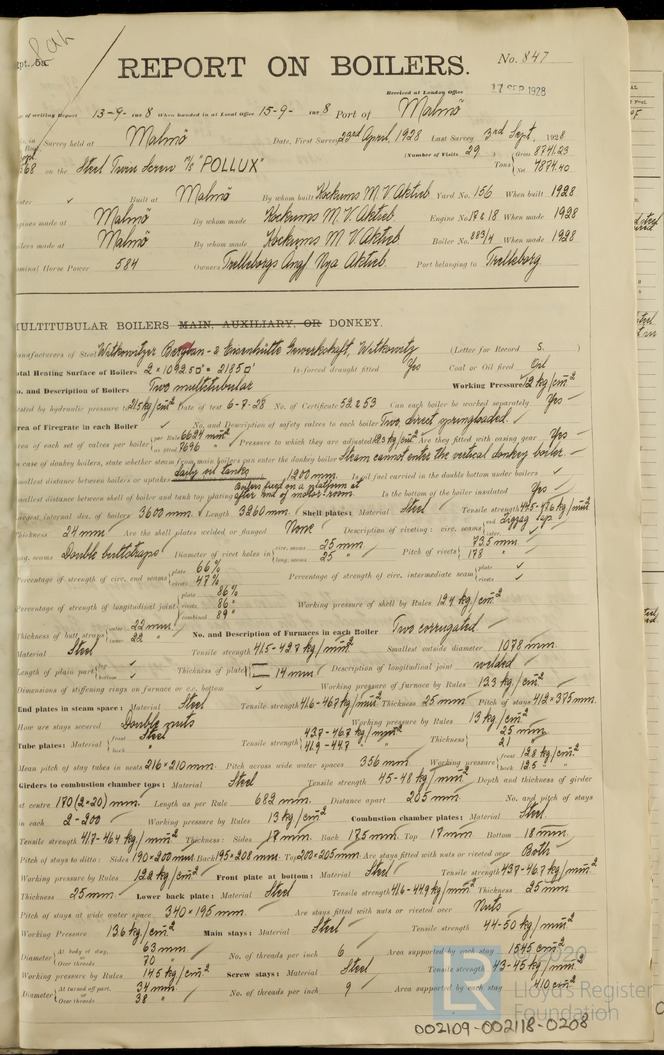 REPORT ON BOILERS.
No. 847
Received at London Office 17 SEP 1928
of writing Report 13-9-1928 When handed in at Local Office 15-9-1928 Port of Malmö
Survey held at Malmö Date, First Survey 23rd April, 1928 Last Survey 3rd Sept. 1928
on the Steel Twin Screw M/S "POLLUX" (Number of Visits 29) Tons Gross 8741.23 Net 4874.40
Built at Malmö By whom built Kockums M.V. Aktieb Yard No. 156 When built 1928
Engines made at Malmö By whom made Kockums M.V. Aktieb Engine No. 17 & 18 When made 1928
Boilers made at Malmö By whom made Kockums M V Aktieb Boiler No. 883/4 When made 1928
Nominal Horse Power 584 Owners Trelleborgs Angf Nya Aktieb. Port belonging to Trelleborg.
MULTITUBULAR BOILERS MAIN, AUXILIARY, OR DONKEY.
Manufacturers of Steel Witkowitzer Bergbau- & Eisenhütte Gewerkschaft, Witkowitz (Letter for Record S.)
Total Heating Surface of Boilers 2 × 1092.50' = 2185 □' Is forced draught fitted Yes Coal or Oil fired Oil
No. and Description of Boilers Two multitubular Working Pressure 12 kg/cm²
Tested by hydraulic pressure to 21.5 kg/cm² Date of test 6-7-28 No. of Certificate 52 & 53 Can each boiler be worked separately Yes
Area of Firegrate in each Boiler ✓ No. and Description of safety valves to each boiler Two, direct springloaded.
Area of each set of valves per boiler per Rule 6624 mm² as fitted 7696 " Pressure to which they are adjusted 12.3 kg/cm² Are they fitted with easing gear Yes
In case of donkey boilers, state whether steam from main boilers can enter the donkey boiler Steam cannot enter the vertical donkey boiler
Smallest distance between boilers or uptakes daily oil tanks 1200 mm. Is oil fuel carried in the double bottom under boilers ✓
Smallest distance between shell of boiler and tank top plating Boilers fixed on a platform at after end of motor-room. Is the bottom of the boiler insulated Yes
Largest internal dia. of boilers 3600 mm. Length 3260 mm. Shell plates: Material Steel Tensile strength 44.5-47.6 kg/mm²
Thickness 24 mm Are the shell plates welded or flanged None Description of riveting: circ. seams end Zigzag lap. inter. ✓
long. seams Double buttstraps Diameter of rivet holes in circ. seams 25 mm. long. seams 25 " Pitch of rivets 73.5 mm. 178 "
Percentage of strength of circ. end seams plate 66% rivets 47% Percentage of strength of circ. intermediate seam plate ✓ rivets ✓
Percentage of strength of longitudinal joint plate 86% rivets 86 " combined 89 " Working pressure of shell by Rules 12.4 kg/cm²
Thickness of butt straps outer 22 mm. inner 22 " No. and Description of Furnaces in each Boiler Two corrugated
Material Steel Tensile strength 41.5-42.7 kg/mm² Smallest outside diameter 1078 mm.
Length of plain part top ✓ bottom ✓ Thickness of plates 14 mm. Description of longitudinal joint welded
Dimensions of stiffening rings on furnace or c.c. bottom ✓ Working pressure of furnace by Rules 13.3 kg/cm²
End plates in steam space: Material Steel Tensile strength 41.6-46.7 kg/mm² Thickness 25 mm. Pitch of stays 412 × 375 mm.
How are stays secured Double nuts Working pressure by Rules 13 kg/cm²
Tube plates: Material front Steel back " Tensile strength 43.7-46.7 kg/mm² 41.9-44.7 " Thickness 25 mm 21 "
Mean pitch of stay tubes in nests 216 × 210 mm. Pitch across wide water spaces 356 mm. Working pressure front 12.8 kg/cm² back 12.5 "
Girders to combustion chamber tops: Material Steel Tensile strength 45-48 kg/mm² Depth and thickness of girder
at centre 170 (2×20) mm. Length as per Rule 682 mm. Distance apart 205 mm. No. and pitch of stays
in each 2-200 Working pressure by Rules 13 kg/cm² Combustion chamber plates: Material Steel
Tensile strength 41.7-46.4 kg/mm² Thickness: Sides 17 mm. Back 17.5 mm. Top 17 mm Bottom 18 mm.
Pitch of stays to ditto: Sides 190 × 200 mm. Back 195 × 208 mm. Top 200 × 205 mm. Are stays fitted with nuts or riveted over Both
Working pressure by Rules 12.2 kg/cm² Front plate at bottom: Material Steel Tensile strength 43.7-46.7 kg/mm²
Thickness 25 mm. Lower back plate: Material Steel Tensile strength 41.6-44.9 kg/mm² Thickness 25 mm
Pitch of stays at wide water space 340 × 195 mm. Are stays fitted with nuts or riveted over Nuts
Working Pressure 13.6 kg/cm² Main stays: Material Steel Tensile strength 44-50 kg/mm²
Diameter At body of stay, 63 mm. or Over threads 70 " No. of threads per inch 6 Area supported by each stay 1545 cm²
Working pressure by Rules 14.5 kg/cm² Screw stays: Material Steel Tensile strength 43-45 kg/mm²
Diameter At turned off part, 34 mm. or Over threads 38 " No. of threads per inch 9 Area supported by each stay 410 cm²
© 2020
Lloyd's Register
Foundation
LR
002109-002118-0208